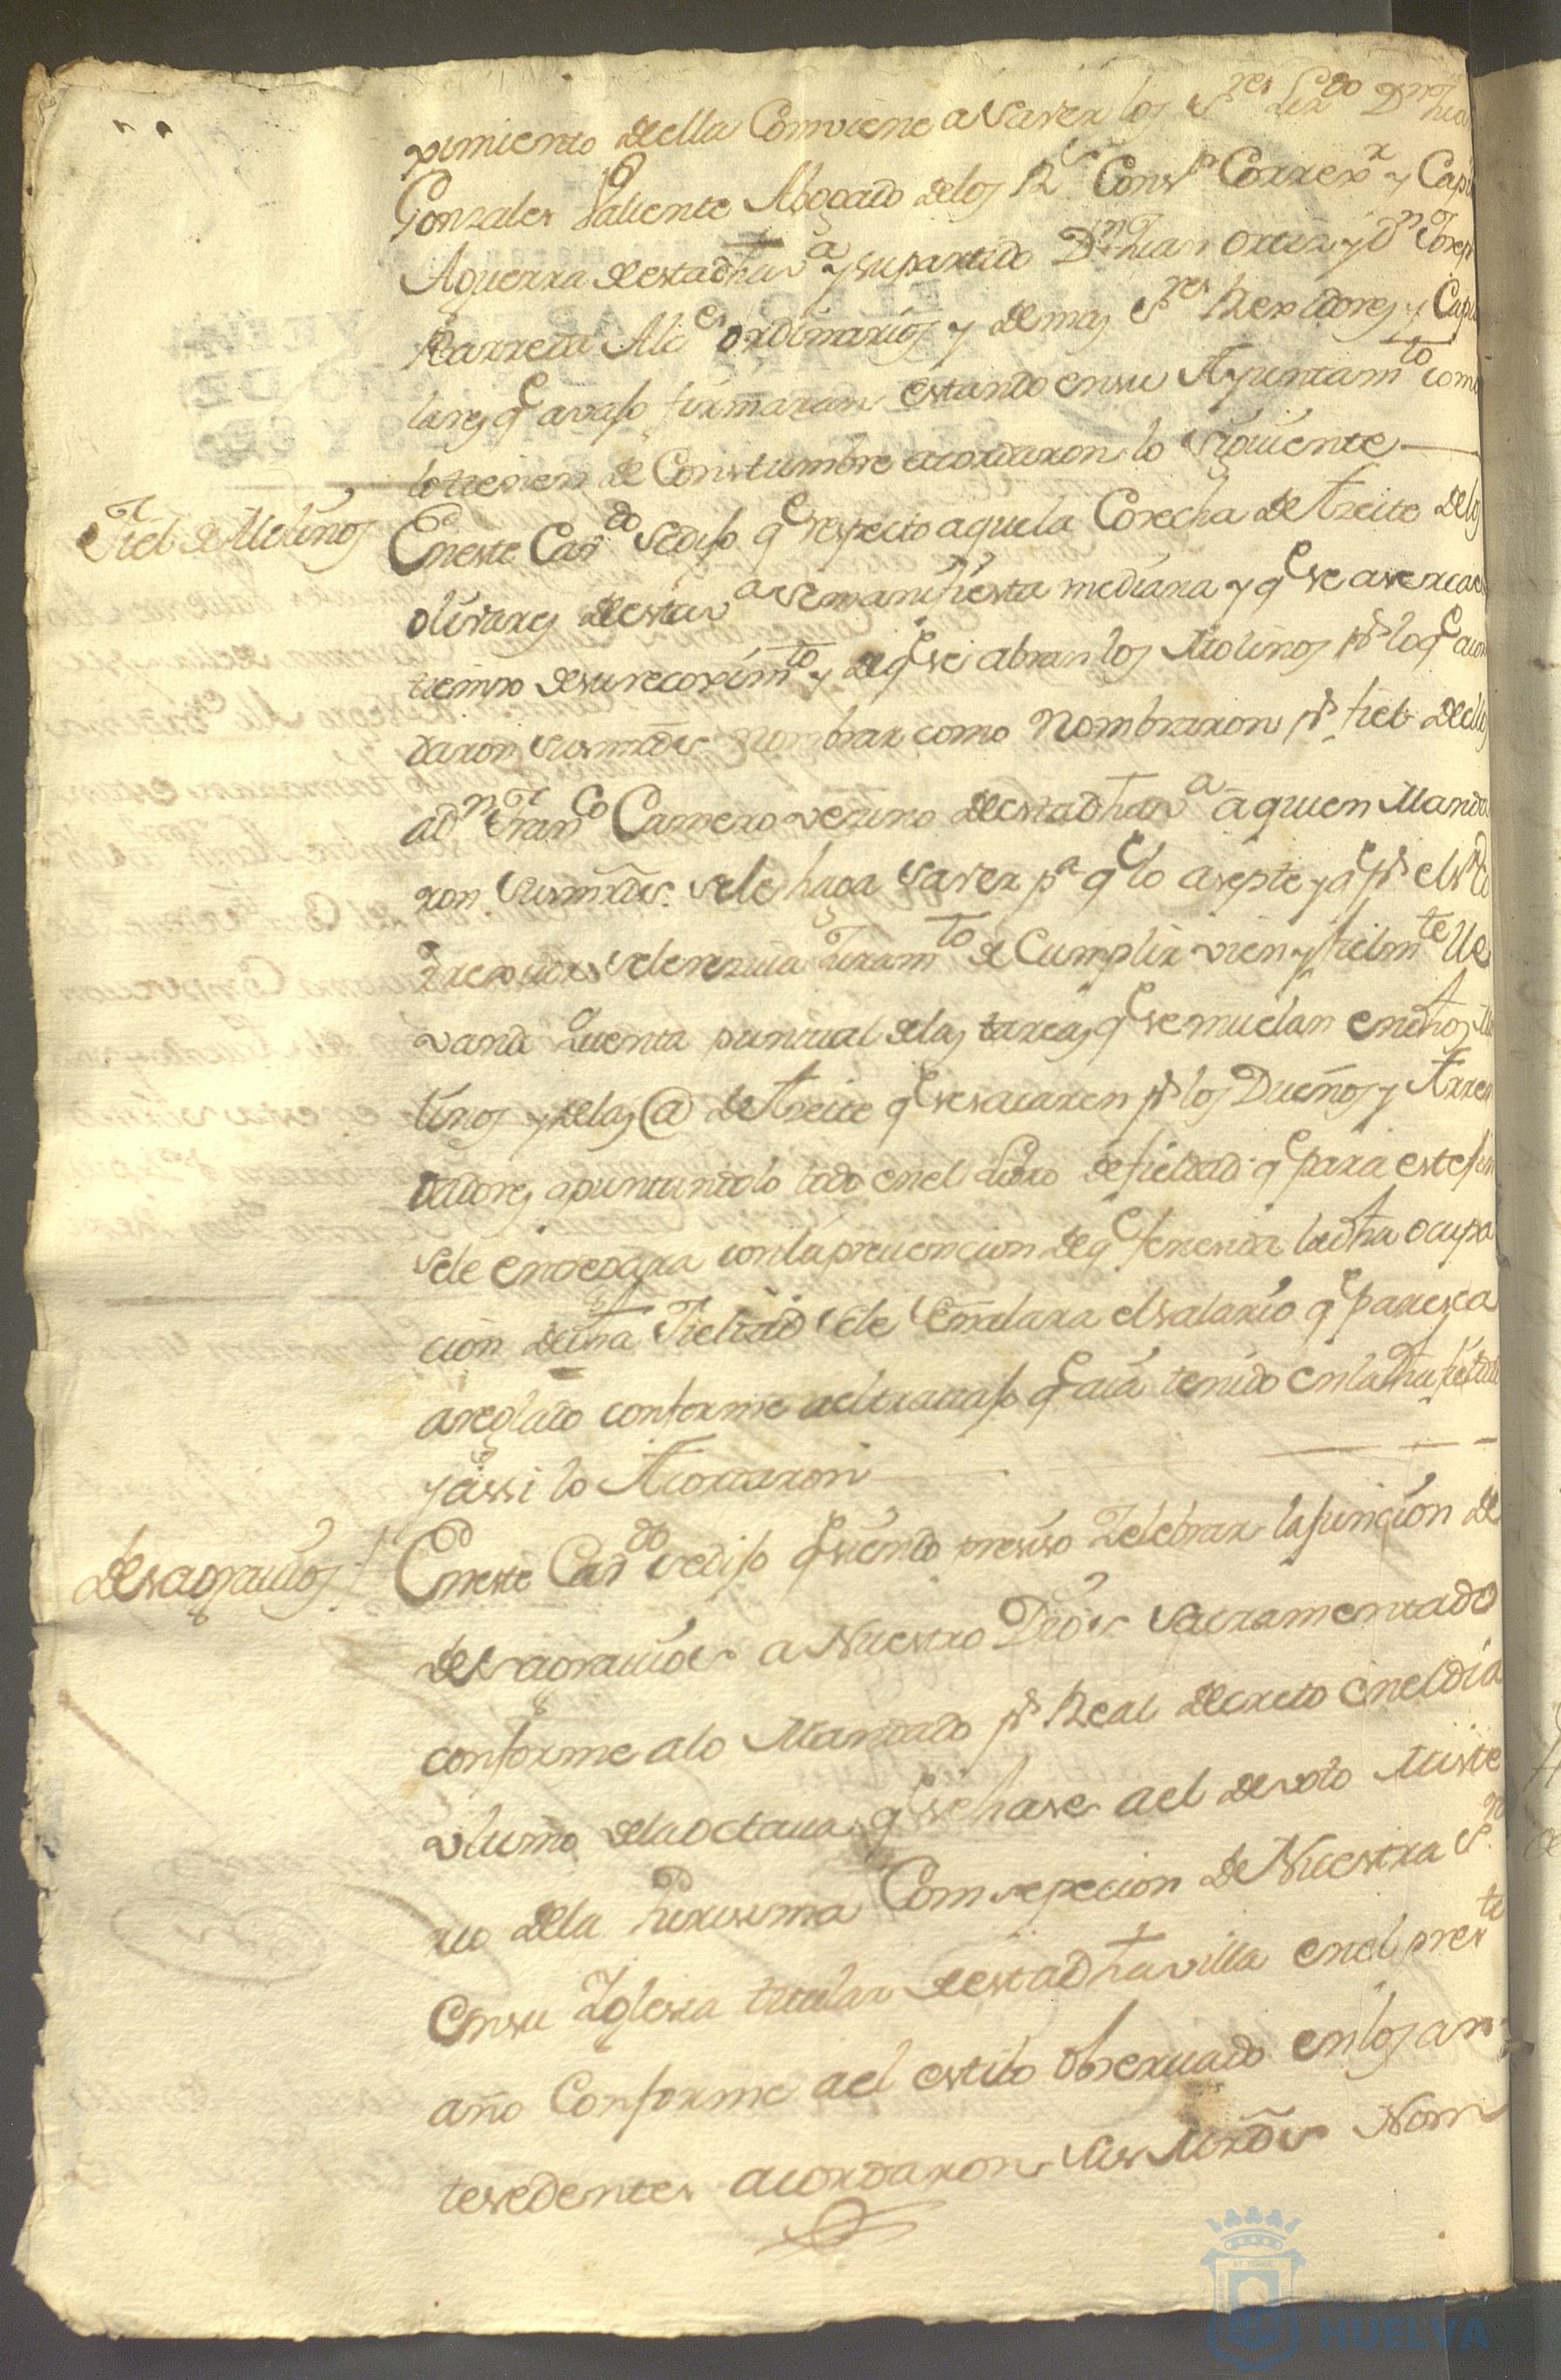 ximiento della Comviene a saver los S.res Lizdo Dn Jua
Gonzales Valiente Abogado delos Rs Consos Correxr y Capn
Aguerra destadha va y supartido Dn Juan Ortiz y Dn Joseph
Barreda Alces ordinarios y demas Sres Rexidores y Capitu
lares qe avajo firmaran estando ensu Ayuntamto como
lotienen de Constumbre acordaron lo siguiente
Fiel de Molinos
Eneste Cavdo sedijo qe respecto aquela Cosecha de Azeite delos
olivares desta va se manifiesta mediana y qe se aserca el
tiempo desu recoximto y deqe se abran los Molinos pr lo qe acor
daron susmrds nombrar como Nombraron pr fiel dellos
adn Franco Camero vezino destadha va aquien Manda
ron susmrds. sele haga saver pa qe lo asepte y qe pr el
sele resiva Juramto de Cumplir vien y fielmte Lle
vando quenta puntual delas tareas qe semuelan endhos Mo
linos y delas @ de Azeite qe sesacaren pr los Dueños y Arren
dadores apuntandolo todo enel Livro defieldad qe para este fin
sele entregara conlaprevencion deqe fenesida ladha ocupa
cion dedha Fieldad sele señalara elsalario qe paresca
areglado conforme aeltravajo qe aia tenido enladha fieldad
y assi lo Acordaron
desagravios
Eneste Cavdo sedijo qe siendo presiso Zelebrar lafuncion de
desagravios a Nuestro Dios sacramentado
conforme alo Mandado pr Real decreto enel dia
vltimo dela octava qe se hase ael devoto Miste
rio dela Purissima Comsepcion de Nuestra Sra
Ensu Iglesia titular destadha villa enel preste
año Conforme ael estilo observado enlos an
tesedentes acordaron sus Mrds Nom
HUELVA